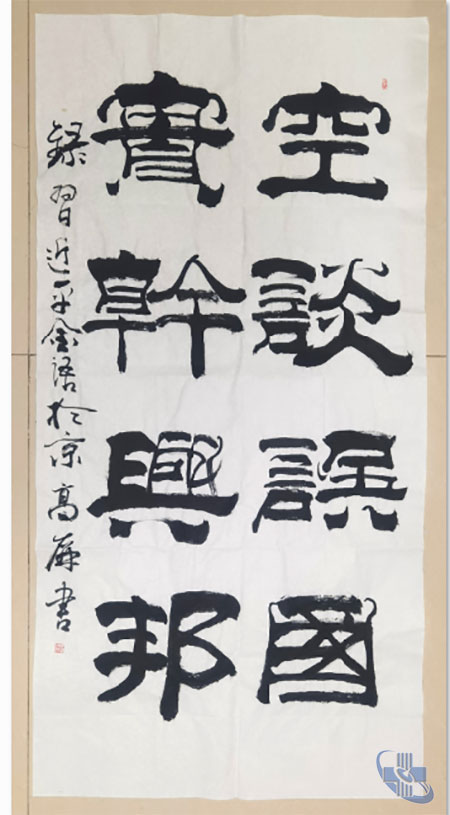 空談誤國
實幹興邦
錄習近平金語於京高屏書